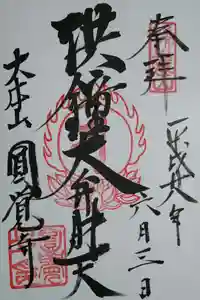 奉拝
平成廿八年
六月三日
洪鐘大弁財天
大本山
圓覚寺